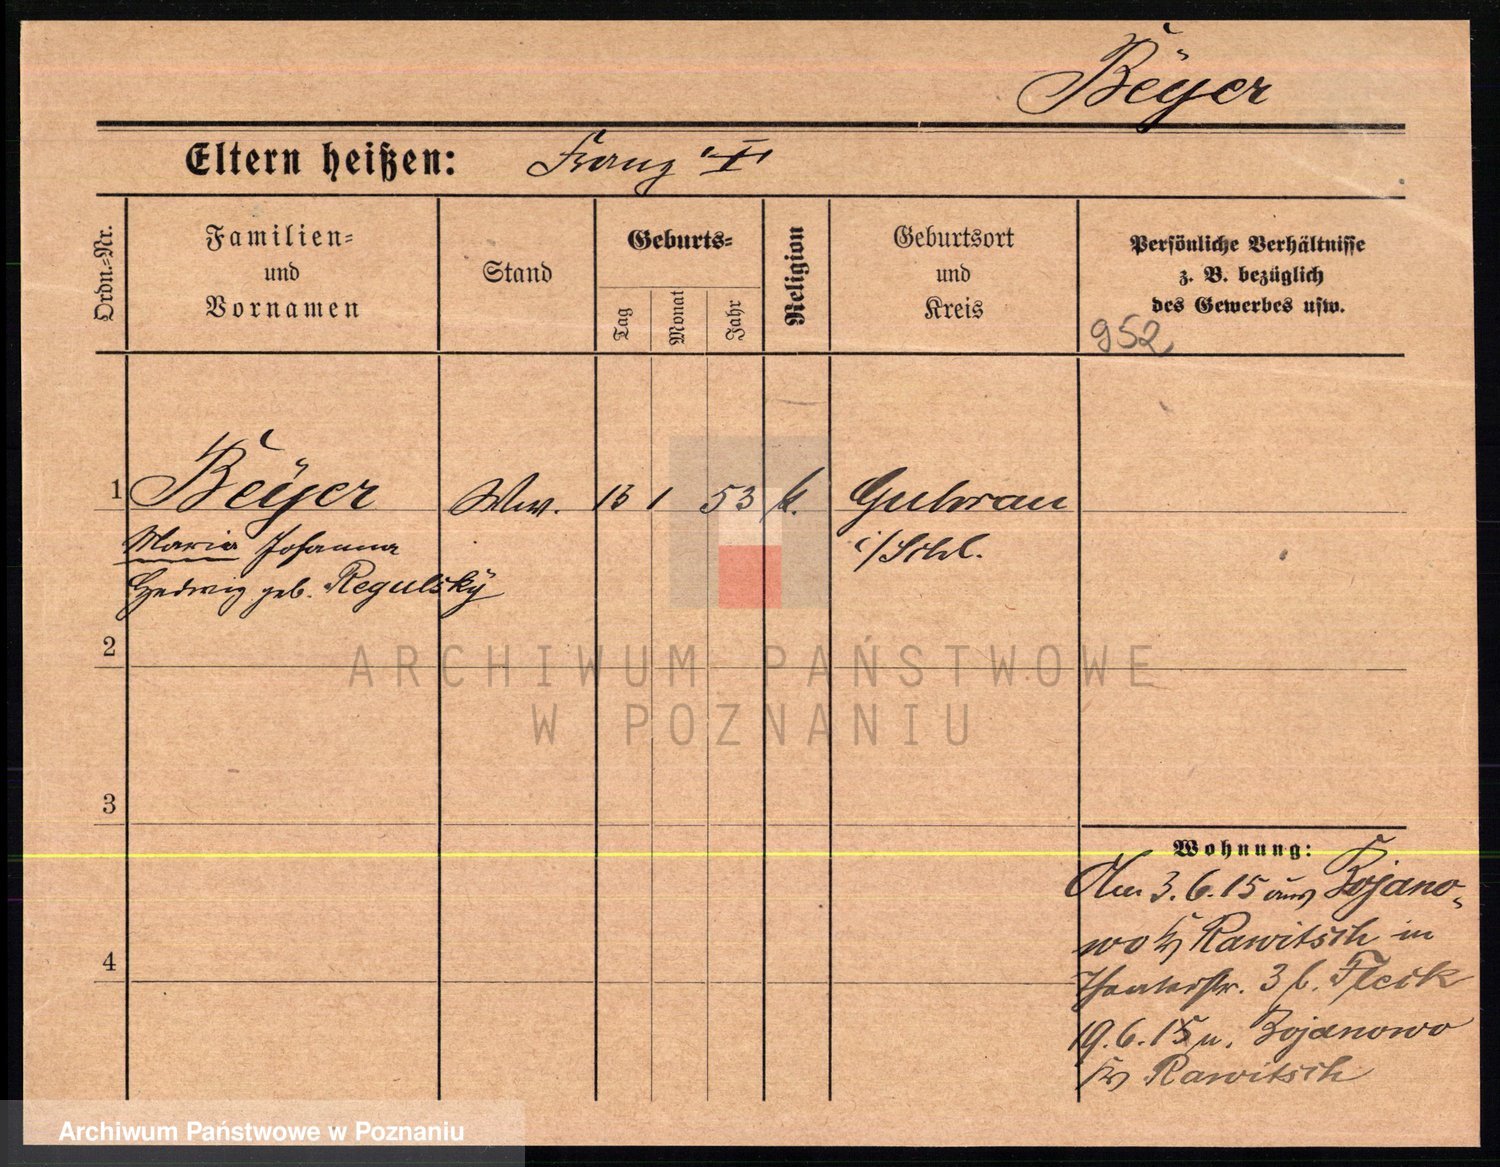 Beÿer
Eltern heißen: Franz "†"
Ordn.-Nr.
Familien-
und
Vornamen
Stand
Geburts-
Tag
Monat
Jahr
Religion
Geburtsort
und
Kreis
Persönliche Verhältnisse
z. B. bezüglich
des Gewerbes usw.
952
1 Beÿer Ww. 13 1 53 k. Guhrau
Maria Johanna i/Schl.
Hedwig geb. Regulskÿ
2
3
4
Wohnung:
Am 3.6.15 aus Bojano-
wo Kr Rawitsch in
Theaterstr. 3 b. Fleck
19.6.15 n. Bojanowo
Kr Rawitsch
ARCHIWUM PAŃSTWOWE
W POZNANIU
Archiwum Państwowe w Poznaniu